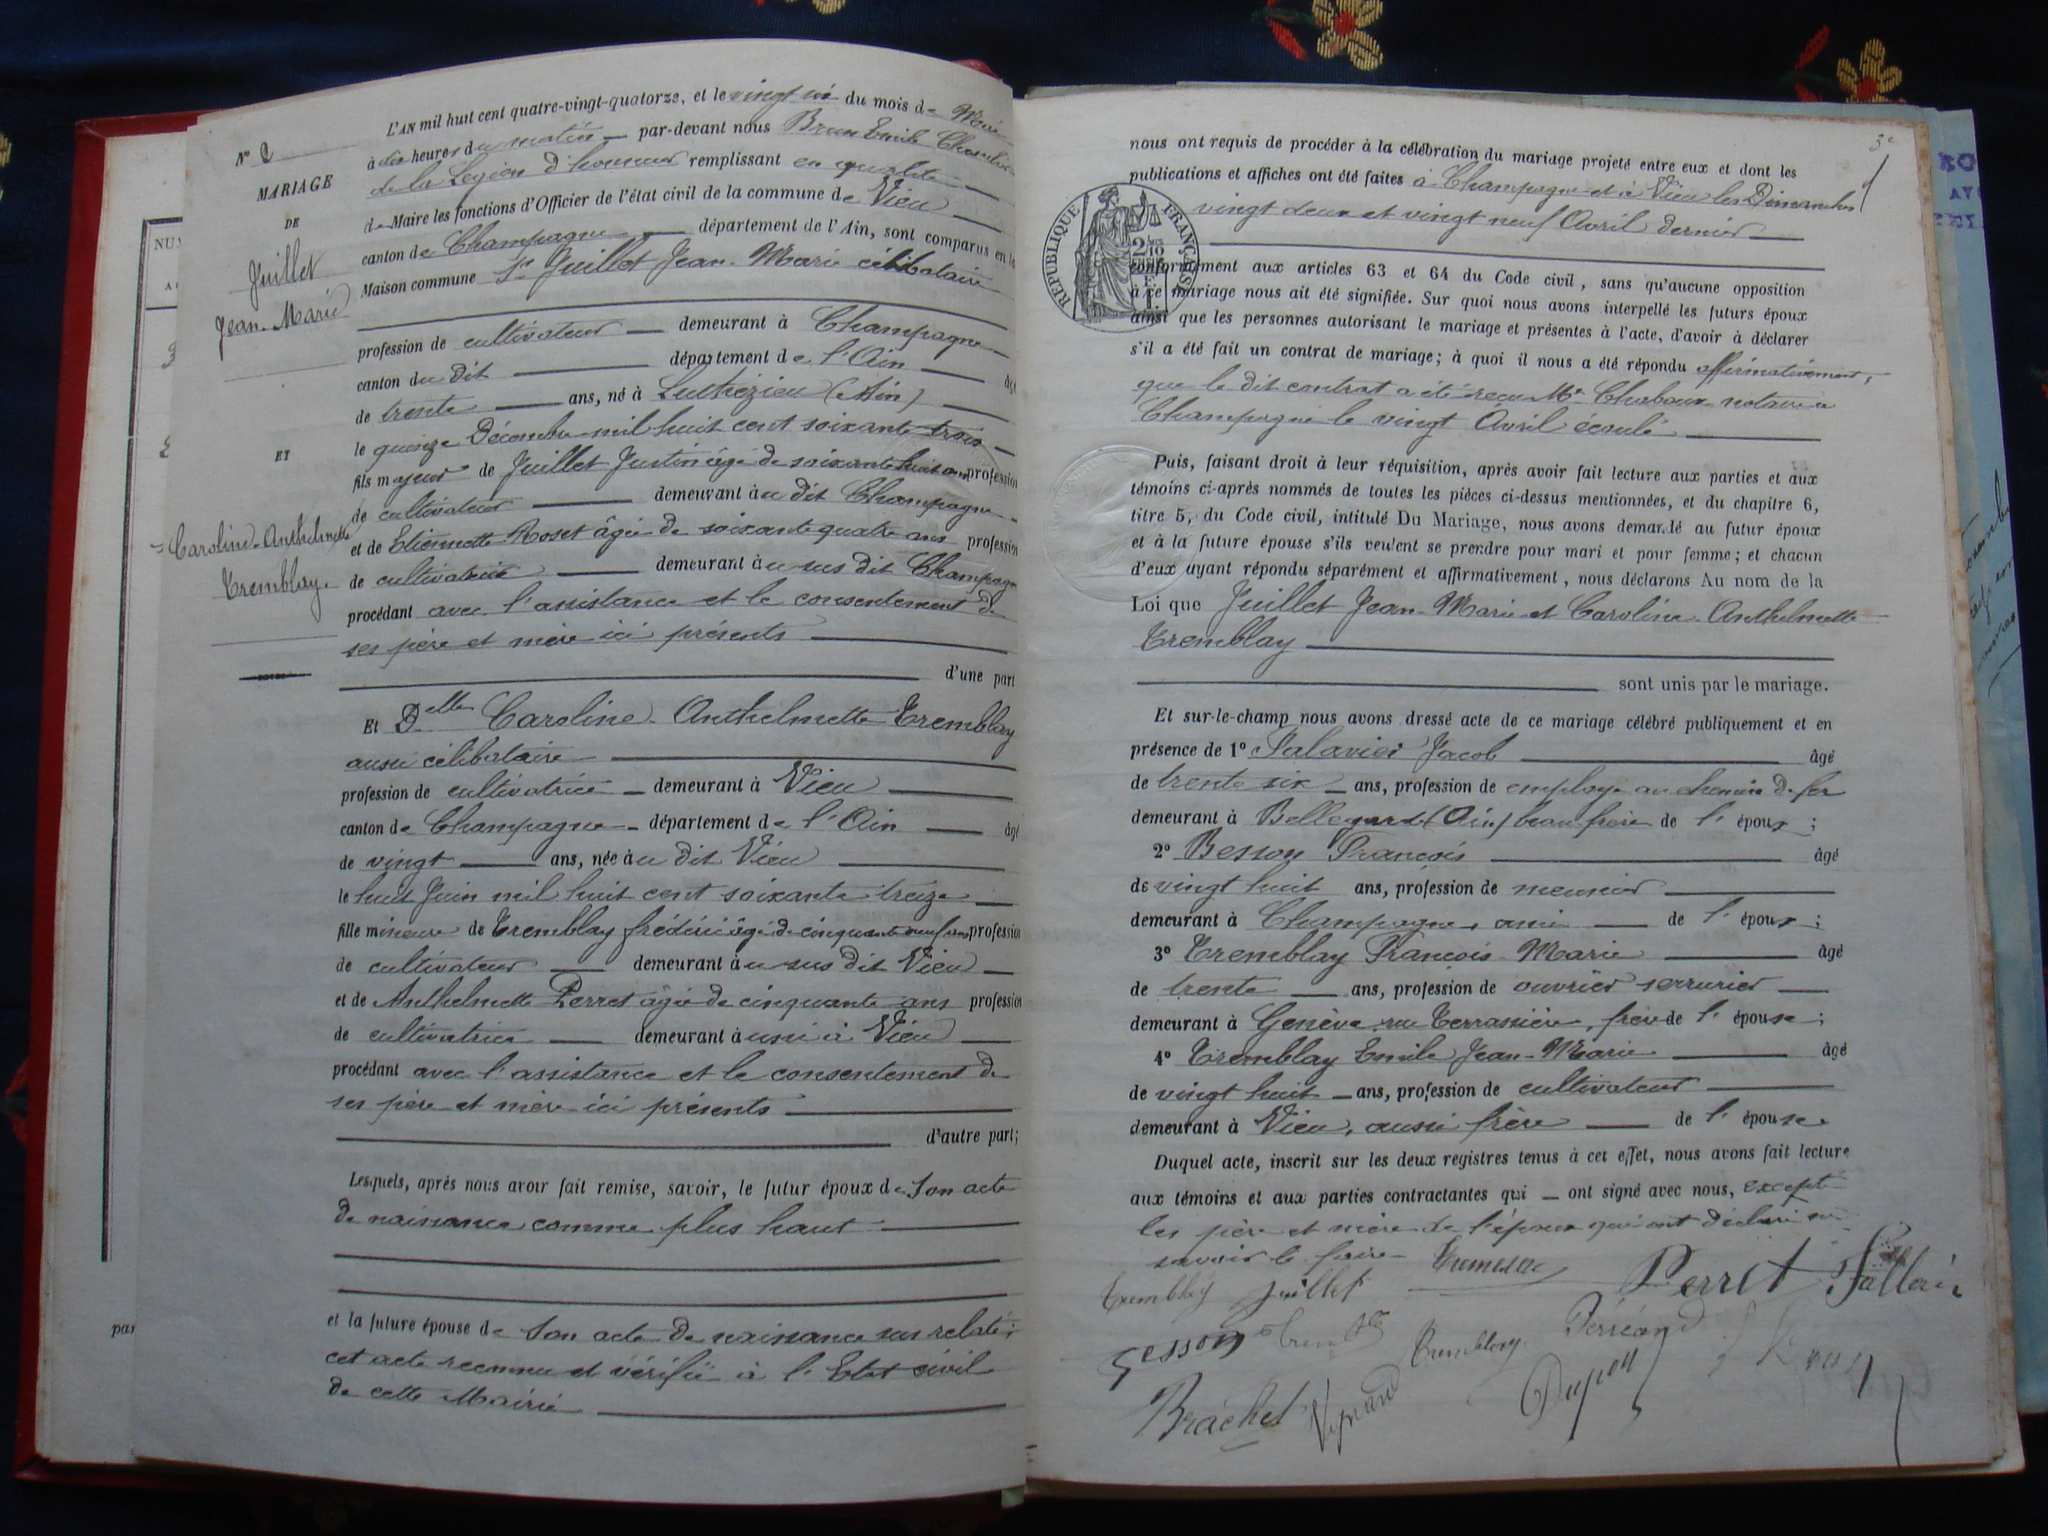 N° 2
MARIAGE
DE
Juillet
Jean-Marie
ET
Caroline-Anthelmette
Tremblay.
L'AN mil huit cent quatre-vingt-quatorze, et le vingt six du mois de Mai
à dix heures du matin par-devant nous Brun Emile Chevalier
de la Légion d'honneur remplissant en qualité
de Maire les fonctions d'Officier de l'état civil de la commune de Vieu
canton de Champagne département de l'Ain, sont comparus en la
Maison commune Sr Juillet Jean-Marie célibataire
profession de cultivateur demeurant à Champagne
canton du dit département de l'Ain âgé
de trente ans, né à Luthézieu (Ain)
le quinze Décembre mil huit cent soixante trois
fils majeur de Juillet Justin âgé de soixante huit ans profession
de cultivateur demeurant au dit Champagne
et de Etiennette Roset âgée de soixante quatre ans profession
de cultivatrice demeurant au sus dit Champagne
procédant avec l'assistance et le consentement de
ses père et mère ici présents
d'une part
Et Delle Caroline-Anthelmette Tremblay
aussi célibataire
profession de cultivatrice demeurant à Vieu
canton de Champagne département de l'Ain âgé
de vingt ans, née au dit Vieu
le huit Juin mil huit cent soixante treize
fille mineure de Tremblay frédéric âgé de cinquante neuf ans profession
de cultivateur demeurant au sus dit Vieu
et de Anthelmette Perret âgée de cinquante ans profession
de cultivatrice demeurant aussi à Vieu
procédant avec l'assistance et le consentement de
ses père et mère ici présents
d'autre part;
Lesquels, après nous avoir fait remise, savoir, le futur époux de son acte
de naissance comme plus haut
et la future épouse de son acte de naissance sus relaté;
cet acte reconnu et vérifié à l'Etat civil
de cette Mairie
3e
nous ont requis de procéder à la célébration du mariage projeté entre eux et dont les
publications et affiches ont été faites à Champagne et à Vieu les Dimanches
vingt deux et vingt neuf Avril dernier
RÉPUBLIQUE FRANÇAISE
conformément aux articles 63 et 64 du Code civil, sans qu'aucune opposition
à ce mariage nous ait été signifiée. Sur quoi nous avons interpellé les futurs époux
ainsi que les personnes autorisant le mariage et présentes à l'acte, d'avoir à déclarer
s'il a été fait un contrat de mariage; à quoi il nous a été répondu affirmativement,
que le dit contrat a été reçu Me Chaboux notaire à
Champagne le vingt Avril écoulé
Puis, faisant droit à leur réquisition, après avoir fait lecture aux parties et aux
témoins ci-après nommés de toutes les pièces ci-dessus mentionnées, et du chapitre 6,
titre 5, du Code civil, intitulé Du Mariage, nous avons demandé au futur époux
et à la future épouse s'ils veulent se prendre pour mari et pour femme; et chacun
d'eux ayant répondu séparément et affirmativement, nous déclarons Au nom de la
Loi que Juillet Jean-Marie et Caroline-Anthelmette
Tremblay
sont unis par le mariage.
Et sur-le-champ nous avons dressé acte de ce mariage célébré publiquement et en
présence de 1° Jacob âgé
de trente six ans, profession de employé au chemin de fer
demeurant à Bellegarde (Ain) beau frère de l'époux;
2° Besson François âgé
de vingt huit ans, profession de meunier
demeurant à Champagne, ami de l'époux;
3° Tremblay François-Marie âgé
de trente ans, profession de ouvrier serrurier
demeurant à Genève rue Terrassière, frère de l'épouse;
4° Tremblay Emile Jean-Marie âgé
de vingt huit ans, profession de cultivateur
demeurant à Vieu, aussi frère de l'épouse
Duquel acte, inscrit sur les deux registres tenus à cet effet, nous avons fait lecture
aux témoins et aux parties contractantes qui ont signé avec nous, excepté
les père et mère de l'époux qui ont déclaré ne
savoir le faire
Tremblay Juillet Perret
Besson Tremblay
Brachet